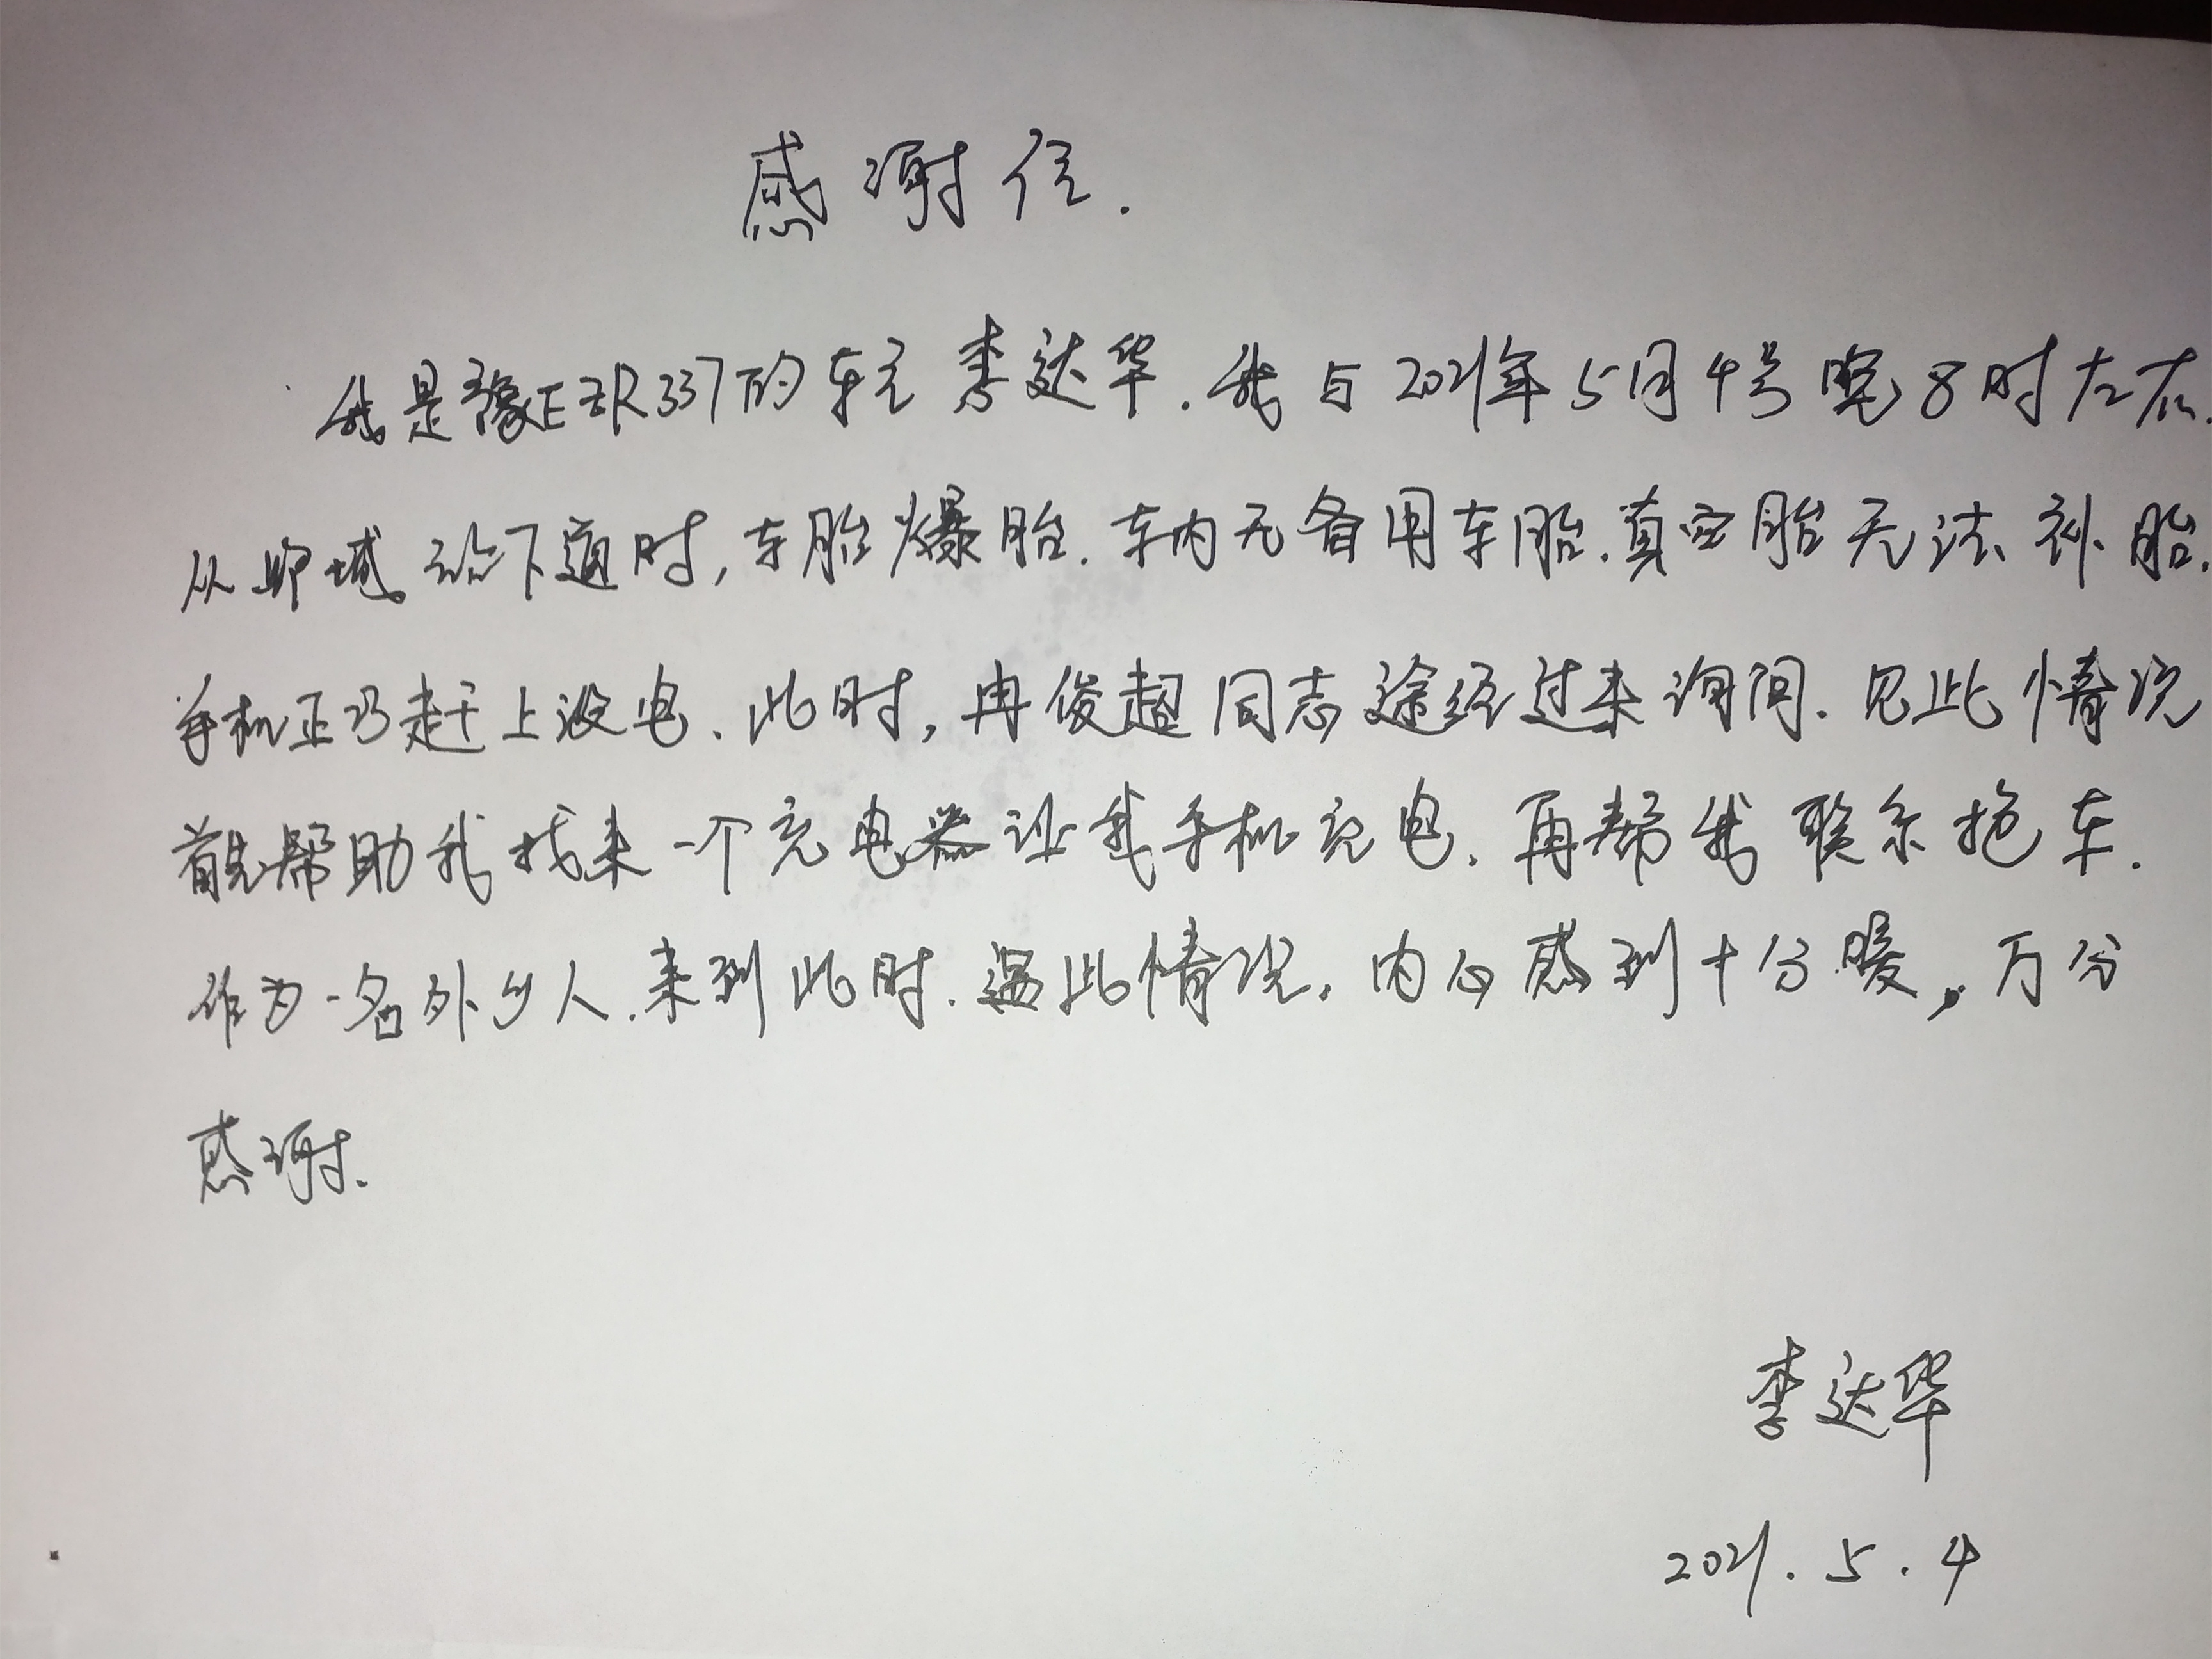 感谢信.
我是豫EZR337的车主李达华.我与2021年5月4号晚8时左右.
从郓城站下道时,车胎爆胎.车内无备用车胎.真空胎无法补胎.
手机正巧赶上没电、此时,冉俊超同志途经过来询问.见此情况
首先帮助我找来一个充电器让我手机充电.再帮我联系拖车.
作为一名外乡人.来到此时.遇此情况.内心感到十分暖,万分
感谢.
李达华
2021.5.4